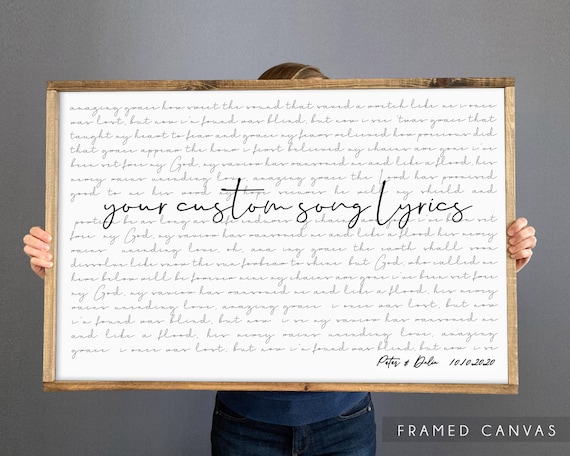 amazing grace how sweet the sound that saved a wretch like me i once
was lost, but now i'm found was blind, but now i see 'twas grace that
taught my heart to fear and grace my fears relieved how precious did
that grace appear the hour i first believed my chains are gone i've
been set free my God, my savior has ransomed me and like a flood, his
mercy reigns unending love, amazing grace the Lord has promised
good to me his word my hope secures he will my shield and
your custom song lyrics
portion be as long
set free my God, my savior has ransomed me and like a flood his mercy
reigns unending love oh amazing grace the earth shall
dissolve like snow the sun forbear to shine but God who called me
here below will be forever mine my chains are gone i've been set free
my God, my savior has ransomed me and like a flood, his mercy
reigns unending love, amazing grace i once was lost, but now
i'm found was blind, but now i see my savior has ransomed me
and like a flood, his mercy reigns unending love, amazing
grace i once was lost, but now i'm found was blind, but now i see
Peter & Dalia 10.10.2020
FRAMED CANVAS